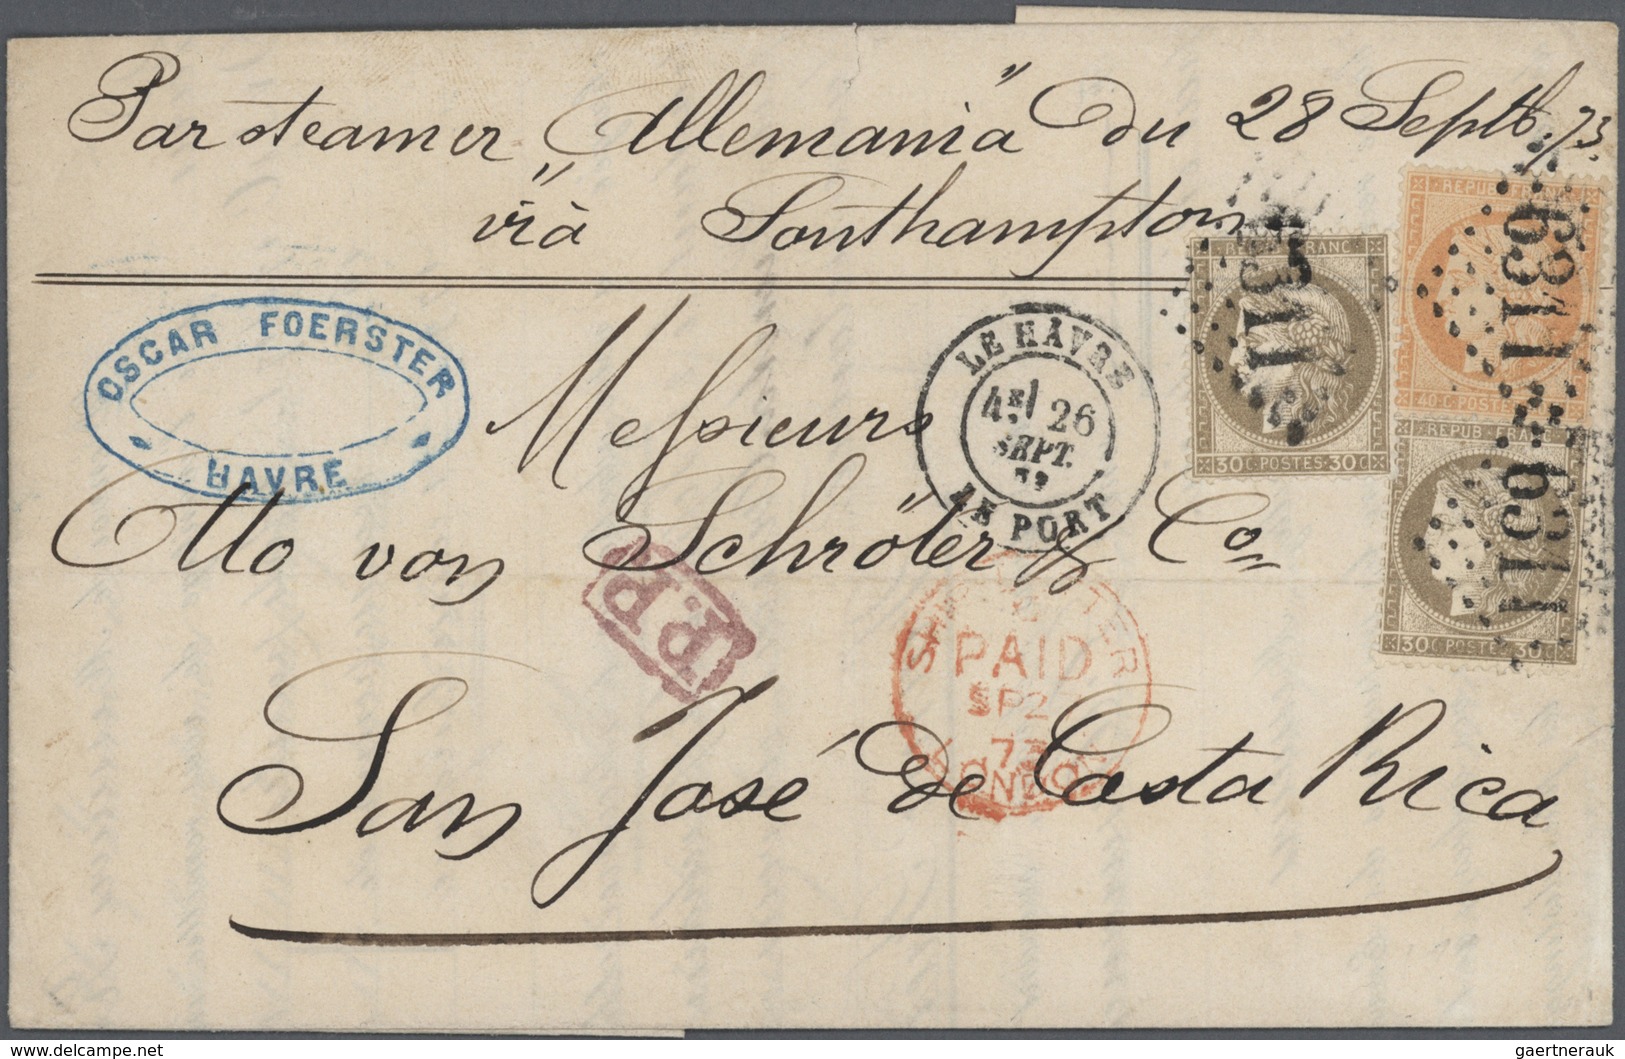 Par steamer "Allemania" du 28 Septb. 73.
vià Southampton
OSCAR FOERSTER
HAVRE
LE HÂVRE
4E/ 26
SEPT.
73
LE PORT
REPUB FRANC
30 C · POSTES · 30 C
REPUB FRANC
40 C POSTES
REPUB FRANC
30 C POSTES 30 C
Messieurs
Otto von Schröter & Co
P.P.
PAID
SP2
73
LONDON
San José de Costa Rica
delcampe.net
gaertnerauk